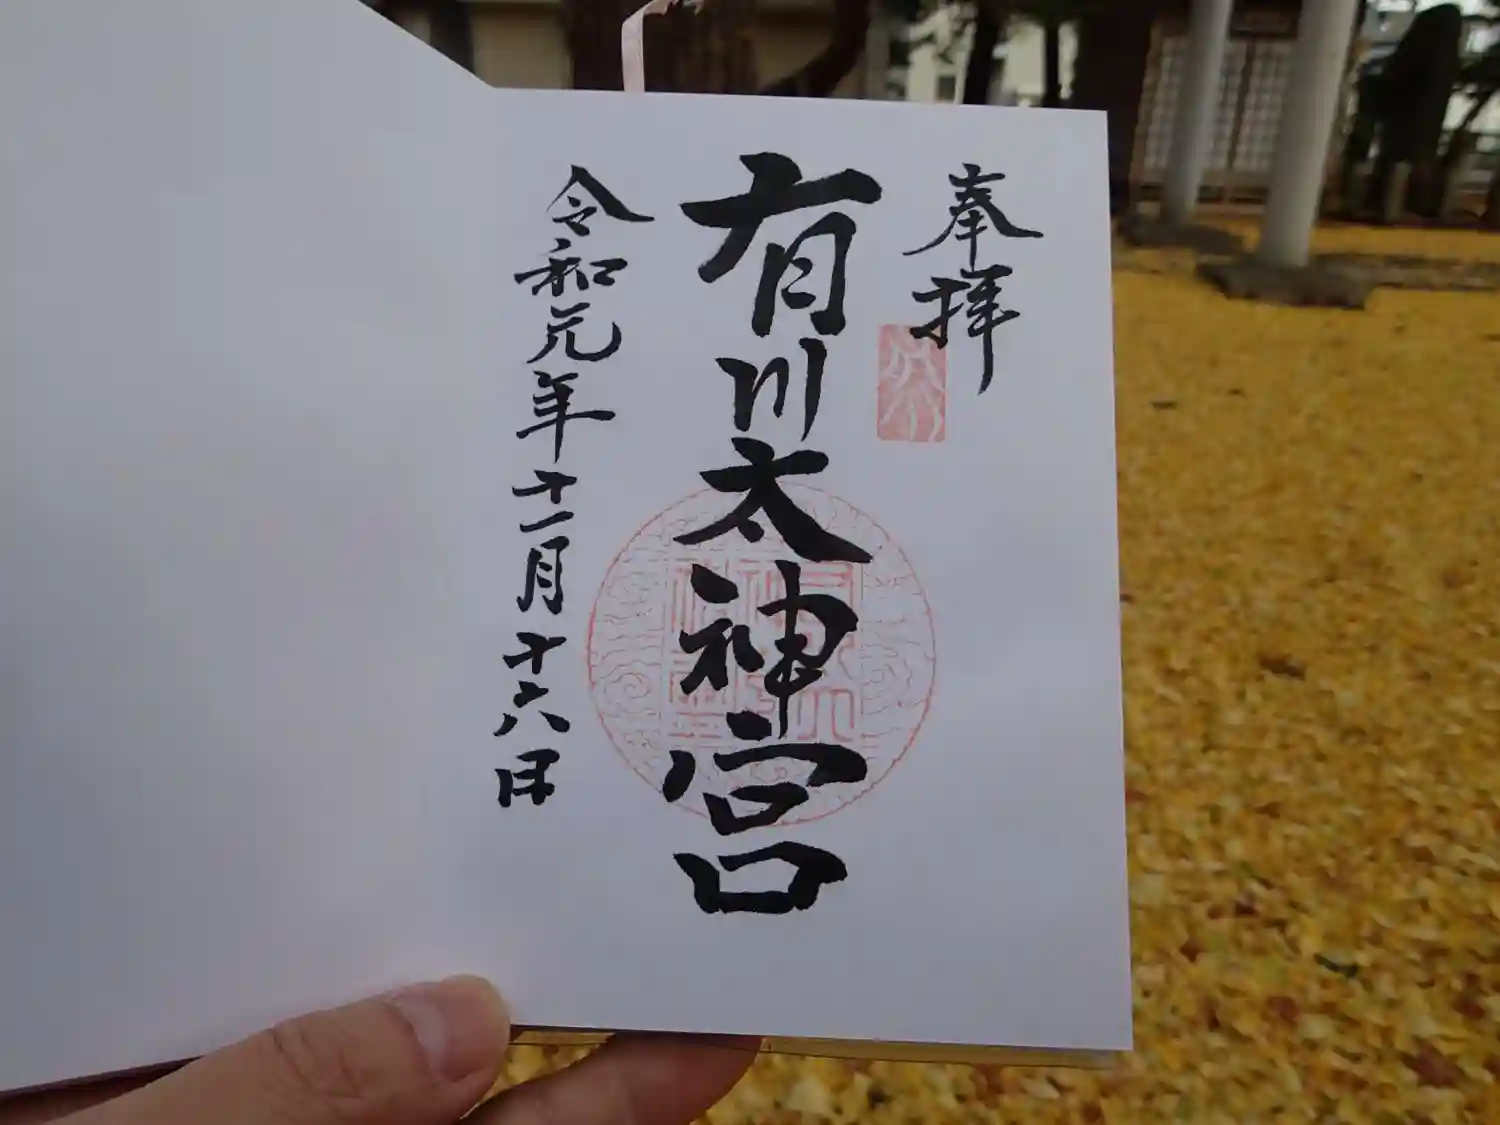 奉拝
有川太神宮
令和元年十一月十六日